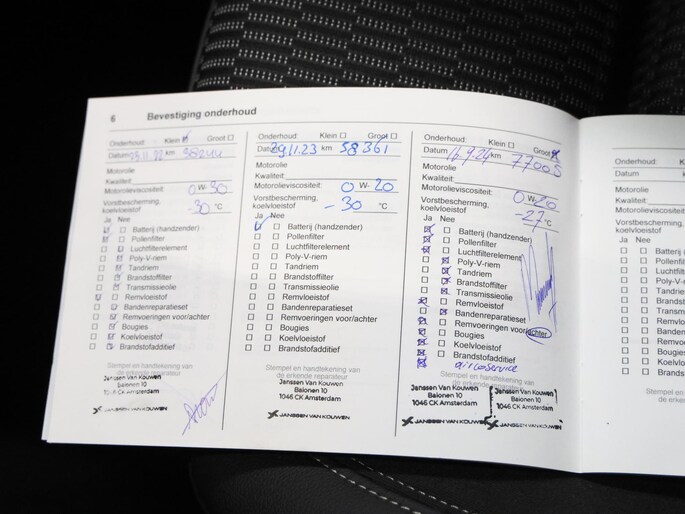 6
Bevestiging onderhoud
Onderhoud: Klein ☒ Groot ☐
Datum 23.11.22 km
Motorolie
Kwaliteit:
Motorolieviscositeit: 0 W- 30
Vorstbescherming,
koelvloeistof -30 °C
Ja Nee
Batterij (handzender)
Pollenfilter
Luchtfilterelement
Poly-V-riem
Tandriem
Brandstoffilter
Transmissieolie
Remvloeistof
Bandenreparatieset
Remvoeringen voor/achter
Bougies
Koelvloeistof
Brandstofadditief
Stempel en handtekening van
de erkende reparateur
Janssen Van Kouwen
Balonen 10
1046 CK Amsterdam
JANSSEN VAN KOUWEN
Onderhoud: Klein ☐ Groot ☐
Datum 29.11.23 km 58361
Motorolie
Kwaliteit:
Motorolieviscositeit: 0 W- 20
Vorstbescherming,
koelvloeistof - 30 °C
Ja Nee
Batterij (handzender)
Pollenfilter
Luchtfilterelement
Poly-V-riem
Tandriem
Brandstoffilter
Transmissieolie
Remvloeistof
Bandenreparatieset
Remvoeringen voor/achter
Bougies
Koelvloeistof
Brandstofadditief
Stempel en handtekening van
de erkende reparateur
Janssen Van Kouwen
Balonen 10
1046 CK Amsterdam
JANSSEN VAN KOUWEN
Onderhoud: Klein ☐ Groot ☒
Datum 16.9.24 km 77005
Motorolie
Kwaliteit:
Motorolieviscositeit: 0 W- 20
Vorstbescherming,
koelvloeistof -27 °C
Ja Nee
Batterij (handzender)
Pollenfilter
Luchtfilterelement
Poly-V-riem
Tandriem
Brandstoffilter
Transmissieolie
Remvloeistof
Bandenreparatieset
Remvoeringen voor/achter
Bougies
Koelvloeistof
Brandstofadditief
aircoservice
Stempel en handtekening van
de erkende reparateur
Janssen Van Kouwen
Balonen 10
1046 CK Amsterdam
JANSSEN VAN KOUWEN
Janssen Van Kouwen
Balonen 10
1046 CK Amsterdam
JANSSEN VAN KOUWEN
Onderhoud:
Datum
Motorolie
Kwaliteit:
Motorolieviscositeit:
Vorstbescherming,
koelvloeistof
Ja Nee
Batterij
Pollenfilter
Luchtfilter
Poly-V-
Tandriem
Brandst
Transm
Remvloe
Banden
Remvoe
Bougies
Koelvloe
Brandst
Stempel
de e